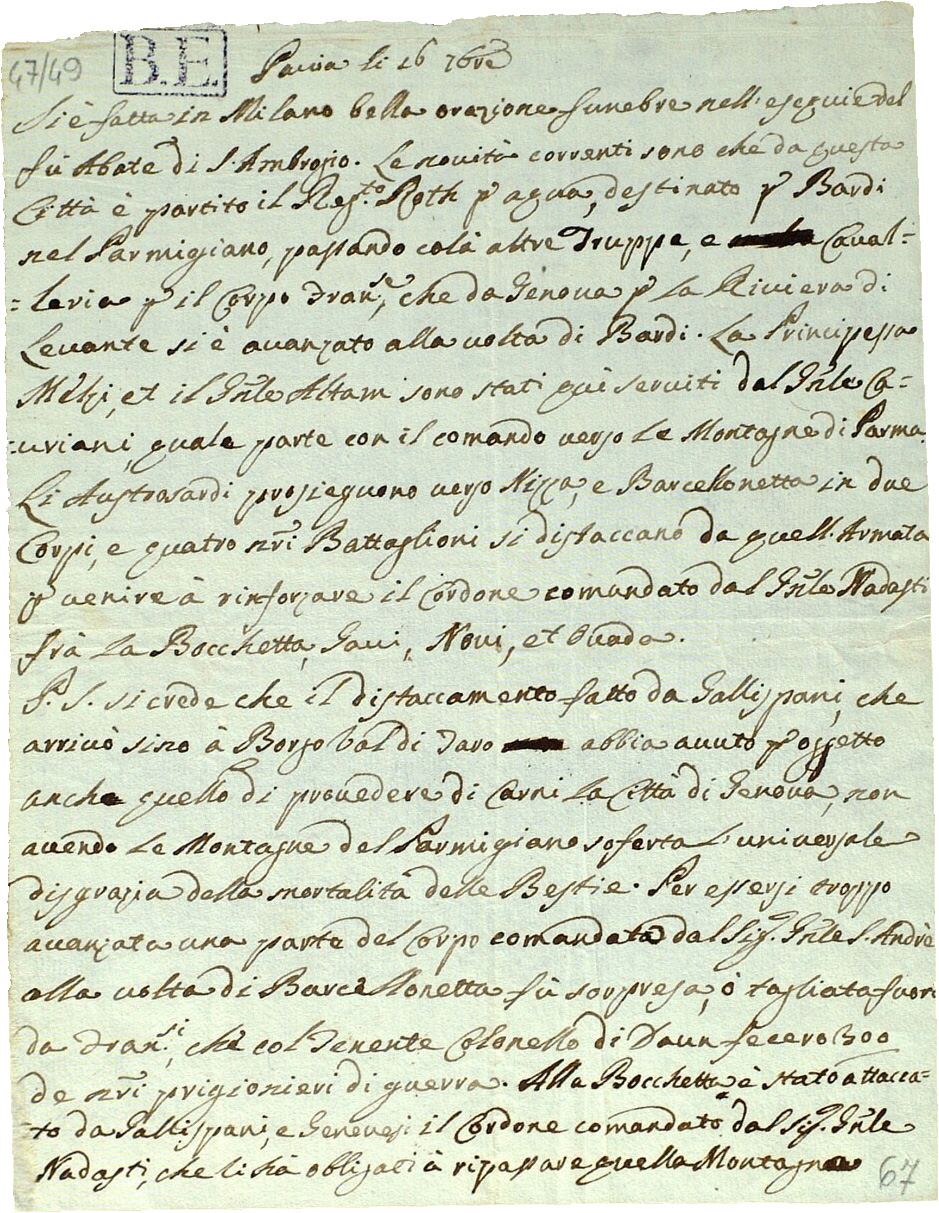 47/49
B.E.
Pavia li 26 7bre
Si è fatta in Milano bella orazione funebre nell'esequie del
fù Abate di S. Ambrosio. Le novità correnti sono che da questa
Città è partito il Reg.to Roth p aqua, destinato p Bardi
nel Parmigiano, passando colà altre Truppe, e Caval=
=leria p il Corpo Fran.se, che da Genova p La Riviera di
Levante si è avanzato alla volta di Bardi. La Principessa
Melzi, et il Gnle Altam sono stati qui serviti dal Gnle Ca=
=uriani, quale parte con il comando verso Le Montagne di Parma.
Li Austrosardi prosieguono verso Nizza, e Barcellonetta in due
Corpi, e quatro nri Battaglioni si distaccano da quell'Armata
p venire à rinforzare il Cordone comandato dal Gnle Nadasti
frà La Bocchetta, Gavi, Novi, et Ovada.
P. S. si crede che il distaccamento fatto da Gallispani, che
arrivò sino à Borgo Val di Taro abbia avuto p oggetto
anche quello di provedere di Carni La Città di Genova, non
avendo Le Montagne del Parmigiano soferta L'universale
disgrazia della mortalità delle Bestie. Per essersi troppo
avanzata una parte del Corpo comandata dal Sig. Gnle S. Andrè
alla volta di Barcellonetta fù sorpresa, ò tagliata fuori
da Fran.si, che col Tenente Colonello di Daun fecero 300
de nri prigionieri di guerra. Alla Bocchetta è stato attacca=
=to da Gallispani, e Genovesi il Cordone comandato dal Sig. Gnle
Nadasti, che li hà obligati à ripassare quella Montagna
67